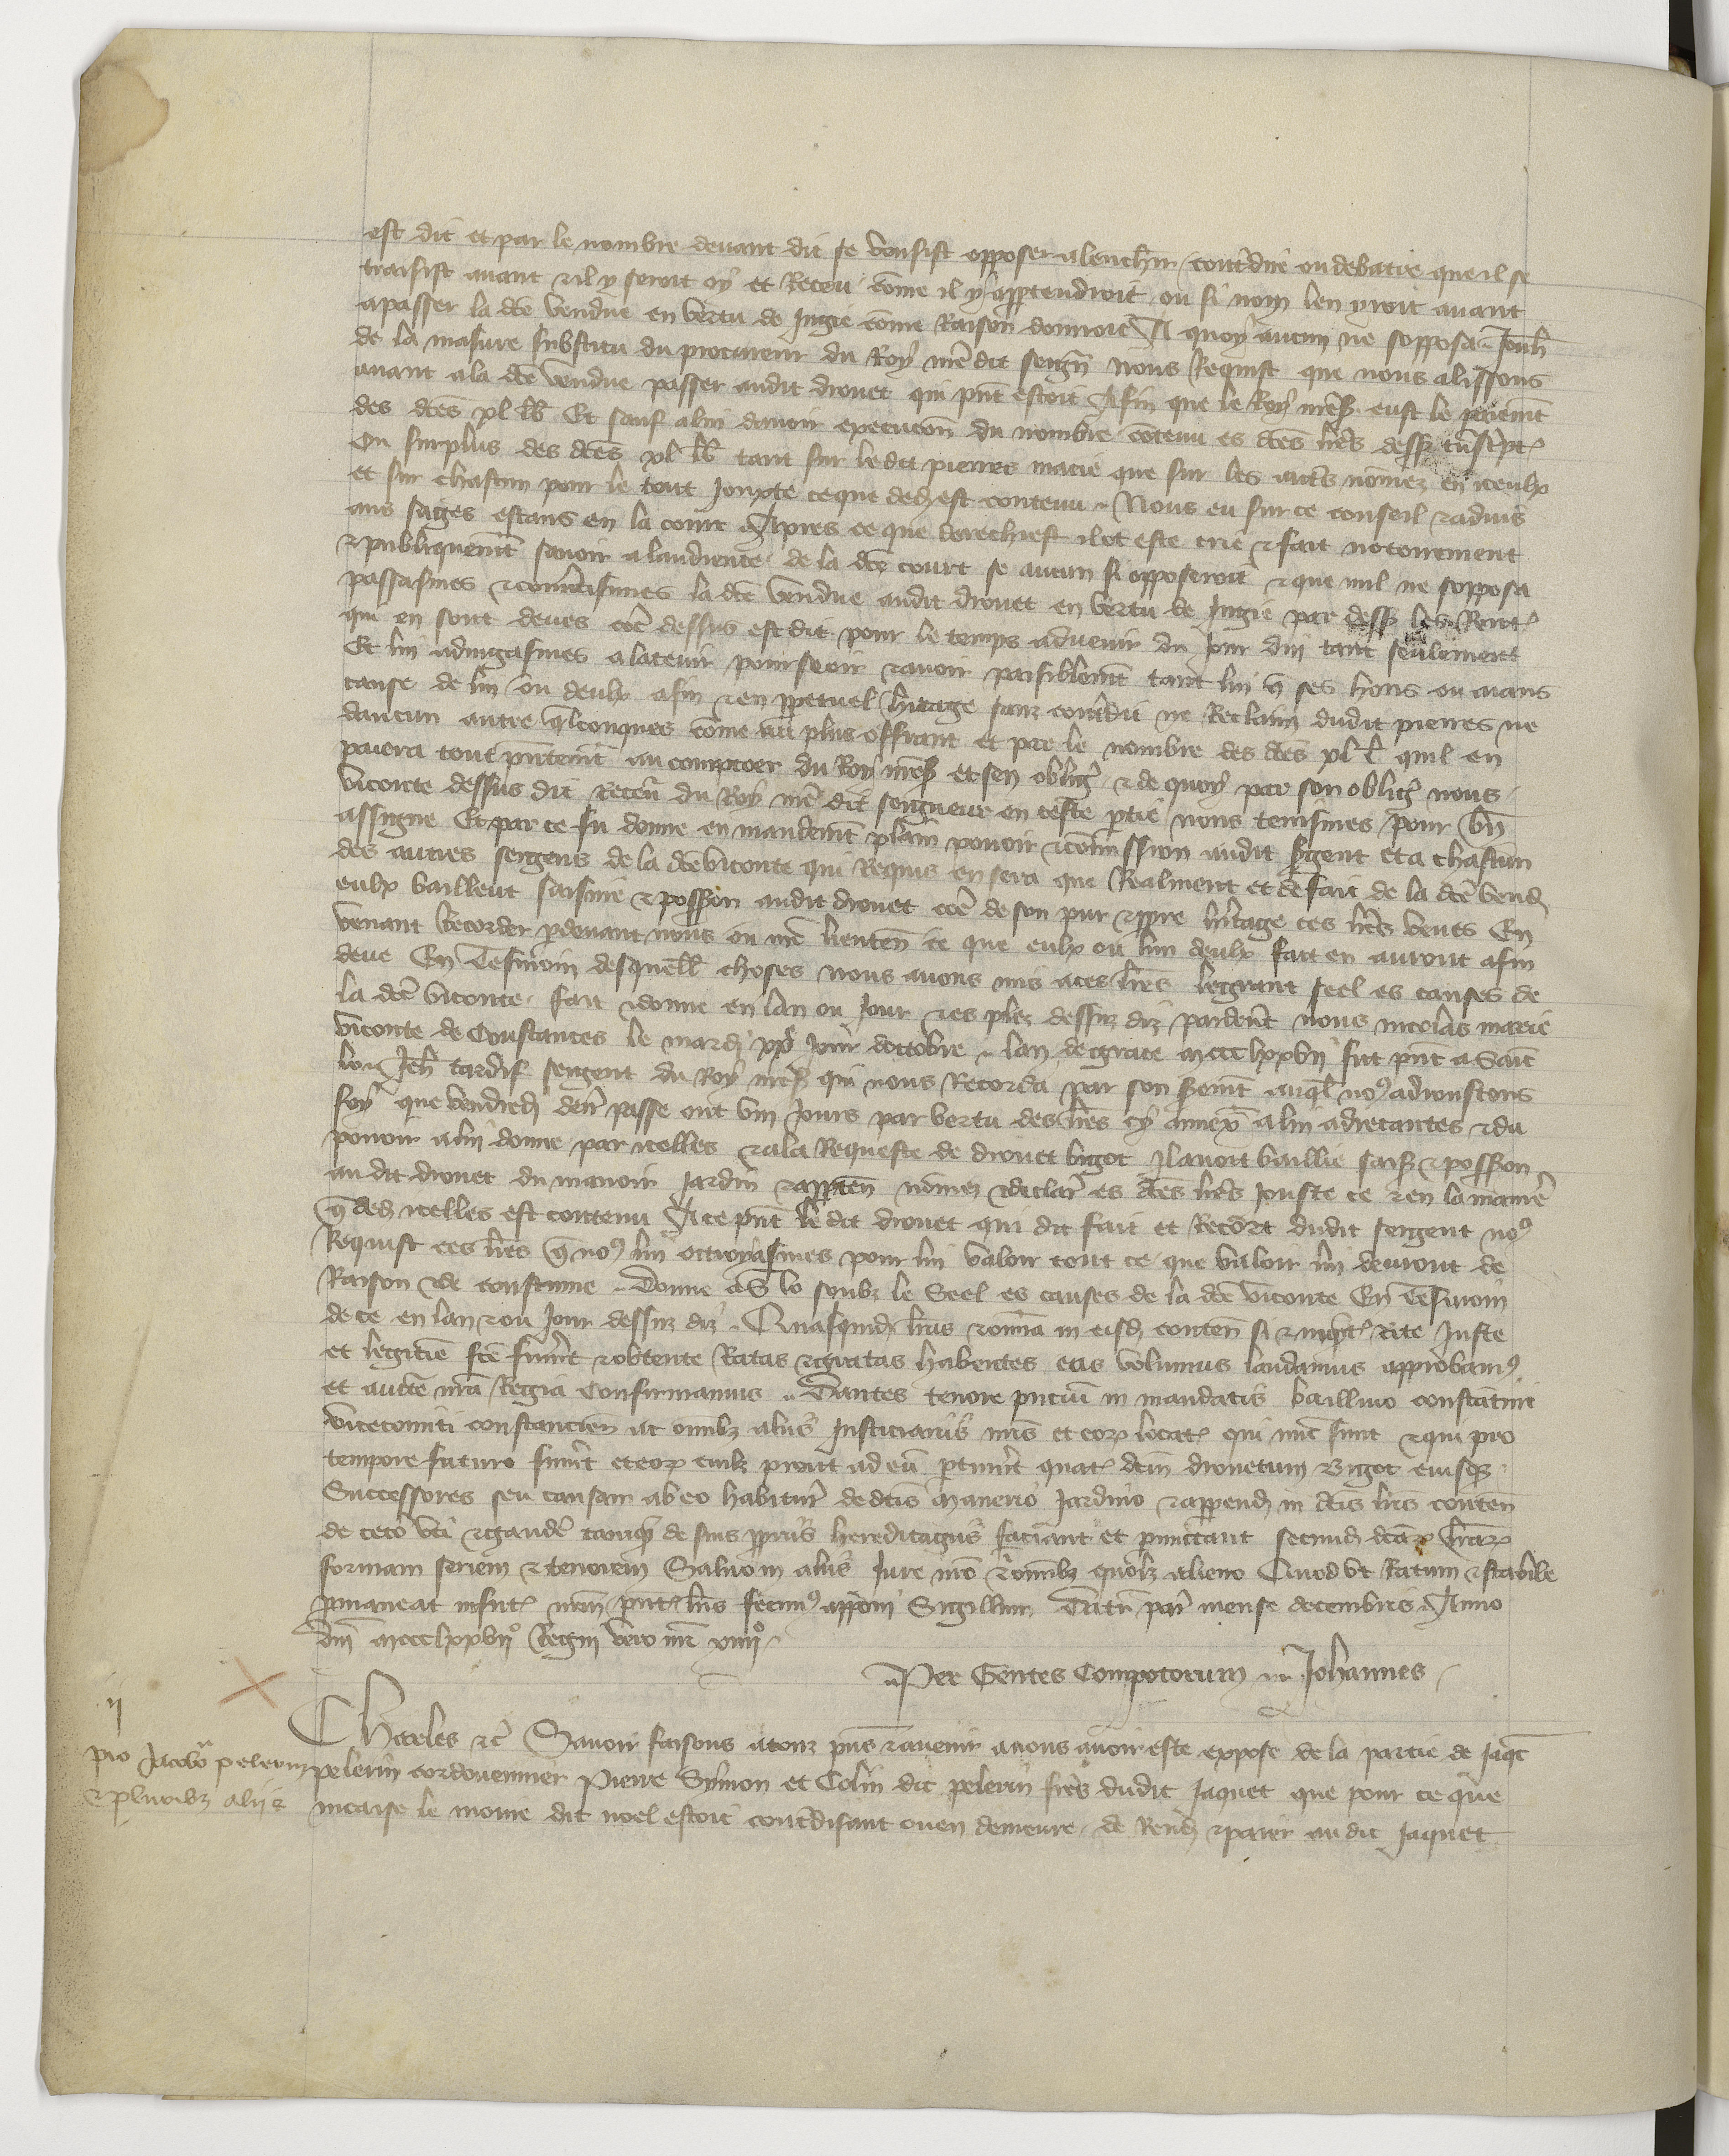 est dit et par le nombre devant dit se vousist opposer alenchier contredire ou debatre que il se
traisist avant & il y seroit oy et Receu cōme il y appartendroit ou si nom len yroit avant
apasser la dcē vendue en vertu de Jugie cōme Raison donnroit A quoy aucun ne sopposa Jouh̄
de la masure substitu du procureur du Roy nrē dit seign̄ nous Requist que nous alissons
avant ala dcē vendue passer audit drouet qui pn̄t estoit Afin que le Roy nrēs. eust le paiemt̄
des dcēs xl lb Et sauf alui davoir execucoñ du nombre cōtenu es dcēs lrēs dess9 tn̄scptes
Ou surplus des dcēs xl lb tant sur ledit pierres macie que sur les autrēs nōmez en iceulx
et sur chascun pour le tout Jouxte ceque ded est contenu Nous eu sur ce conseil & advis
aus sages estans en la court Apres ce que derechief il et este crie & fait notoirement
& publiquemt̄ savoir alaudience de la dcē court se aucun si opposeroit & que nul ne sopposa
passasmes & confermasmes la dcē vendue audit drouet en vertu de Jugie par dess9 les Rentes
qui en sont deues cōe dessus est dit pour le temps advenir du jour duy tant seulement
Et lui adiugasmes alatenir pourseoir & avoir paisiblemt̄ tant lui q̄ ses hoirs ou aians
cause de lui ou deulx afin & en ppetuel heritage sanz contredit ne Reclaim dudit pierres ne
daucun autre qlconques cōme au plus offrant et par le nombre des dcēs xl l quil en
paiera tout pn̄temt̄ au comptoer du Roy nrēs et sen obliga & de quoy par son oblig nous
viconte dessus dit Receu du Roy nrē dit seigneur en ceste ptie nous tenismes pour bn̄
assigne Et par ce fu donne en mandemt̄ plain povoir & cōmission audit sgent et a chascun
des autres sergens de la dcē viconte qui Requis en sera que Realment et de fait de la dcē vend
eulx baillent saisine & possion audit drouet cōe de son pur & ppre heritage ces lrēs veues En
venant Recorder pdevant nous ou nrē lieuten̄ ce que eulx ou lun deulx fait en auront afin
deue En Tesmoin desquell choses nous avons mis aces lrēs legrant seel es causes de
la dcē viconte fait & donne en lan ou Jour & es plez dessuz diz pardevt̄ nous nicolas macie
viconte de Coustances le mardi xxe jour doctobre lan de grace mccclxxvij fut pn̄t a Saīt
lou Jeh̄ tardif sergent du Roy nrēs qui nous Recorda par son sermt̄ auql no9 adioustons
foy que vendredi den̄r passe ont viij jours par vertu des lrēs cy annexēs alui adrecantes & du
povoir alui donne par icelles & ala Requeste de drouet bigot Ilavoit baillie sais & possion
audit drouet du manoir Jardin & apparten̄ nōmez & declarēz es dcēs lrēs Jouste ce & en la manre
q̄ ded icelles est contenu Ace pn̄t ledit drouet qui dit fait et Recort dudit sergent no9
Requist ces lrēs q̄ no9 lui ottroyasmes pour lui valoir tout ce que valoir lui devront de
Raison & de coustume Donne a S lo soubz le Seel es causes de la dcē viconte En Tesmoin
de ce en lan & ou Jour dessuz diz Quasquid lrās & omīa in eisd conten̄ si & inqt̄ Rite Juste
et legitīe fcē fuert̄ & obtente Ratas & gratas habentes eas volumus laudamus approbam9
et aucte nrā Regia Confirmamus Dantes tenore pn̄ciū in mandatis baillivo constantini
vicecomiti constancien̄ ac omib3 aliis Justiciariis nrīs et eor locat qui nūc sunt & qui pro
tempore futuro fuert̄ et eor cuilb3 prout ad eū ptinuert̄ quat dcm̄ drouetum Bigot eiusq3
Successores seu causam ab eo habitur̄ de dictis Manerio Jardino & append in dcīs lrīs conten̄
de cetō uti & gaudē tanq de suis ppriis hereditagiis faciant et pmittant secund dcār lrār
formam seriem & tenorem Salvo in aliis Jure nrō & omib3 quolb3 alieno Quod ut Ratum & stabile
pmaneat in fut nrm̄ pn̄t lrīs fecim9 apponi Sigillum Datu par mense decembris Anno
dnī mccclxxvijo Regni vero nrī xiiijo
Per Gentes Compotorum Johannes
ij
Charles &c Savoir faisons atouz pn̄s & avenir anous avoir este expose de la partie de Jaqt
pro Jacobo pelerin
& pluribz aliis
pelerin cordouennier Pierre Symon et Colin dit pelerin frēs dudit Jaquet que pour ce que
nicaise le moine dit noel estoit contredisant ou en demeure de Rendre & paier audit Jaquet